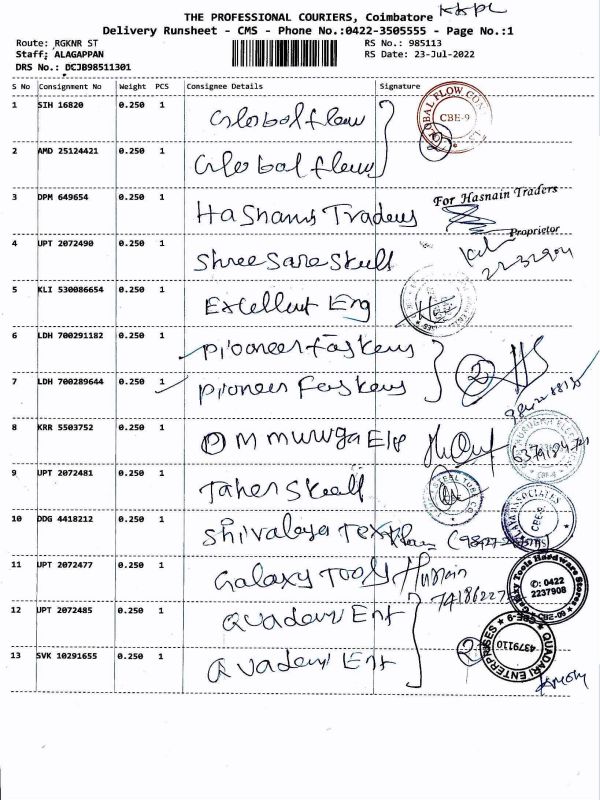 THE PROFESSIONAL COURIERS, Coimbatore
Delivery Runsheet - CMS - Phone No.:0422-3505555 - Page No.:1
Route: RGKNR ST RS No.: 985113
Staff: ALAGAPPAN RS Date: 23-Jul-2022
DRS No.: DCJB98511301
S No Consignment No Weight PCS Consignee Details Signature
1 SIH 16820 0.250 1 Global flow
GLOBAL FLOW CON
CBE-9
2 AMD 25124421 0.250 1 Global flow
3 DPM 649654 0.250 1 Hasnams Traders
For Hasnain Traders
Proprietor
4 UPT 2072490 0.250 1 Shree Sare Steell
5 KLI 530086654 0.250 1 Excellent Eng
6 LDH 700291182 0.250 1 Piooneer Faskens
2
7 LDH 700289644 0.250 1 Pioneer Faskens
8 KRR 5503752 0.250 1 OM Muruga Ele
9 UPT 2072481 0.250 1 Taher Steell
STEEL TUBE CO
10 DDG 4418212 0.250 1 Shivalaya Tex
ASSOCIATES
CBE-9
11 UPT 2072477 0.250 1 Galaxy Tools Hussain
Galaxy Tools Hardware Stores
✆: 0422
2237908
CBE-09
12 UPT 2072485 0.250 1 Quaderi Ent
13 SVK 10291655 0.250 1 Quaderi Ent
2
QUADARI ENTERPRISES
4379110